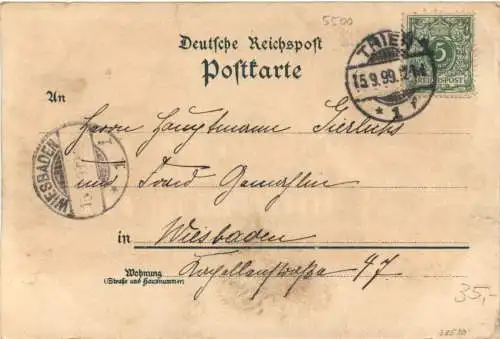 5500
Deutsche Reichspost
Postkarte
TRIER
15.9.99.
* 1
5
REICHSPOST
An
Herrn Hauptmann Gierlichs
WIESBADEN
* 1
und Frau Gemahlin
in Wiesbaden
Wohnung
(Straße und Hausnummer)
Kapellenstraße 47
35,-